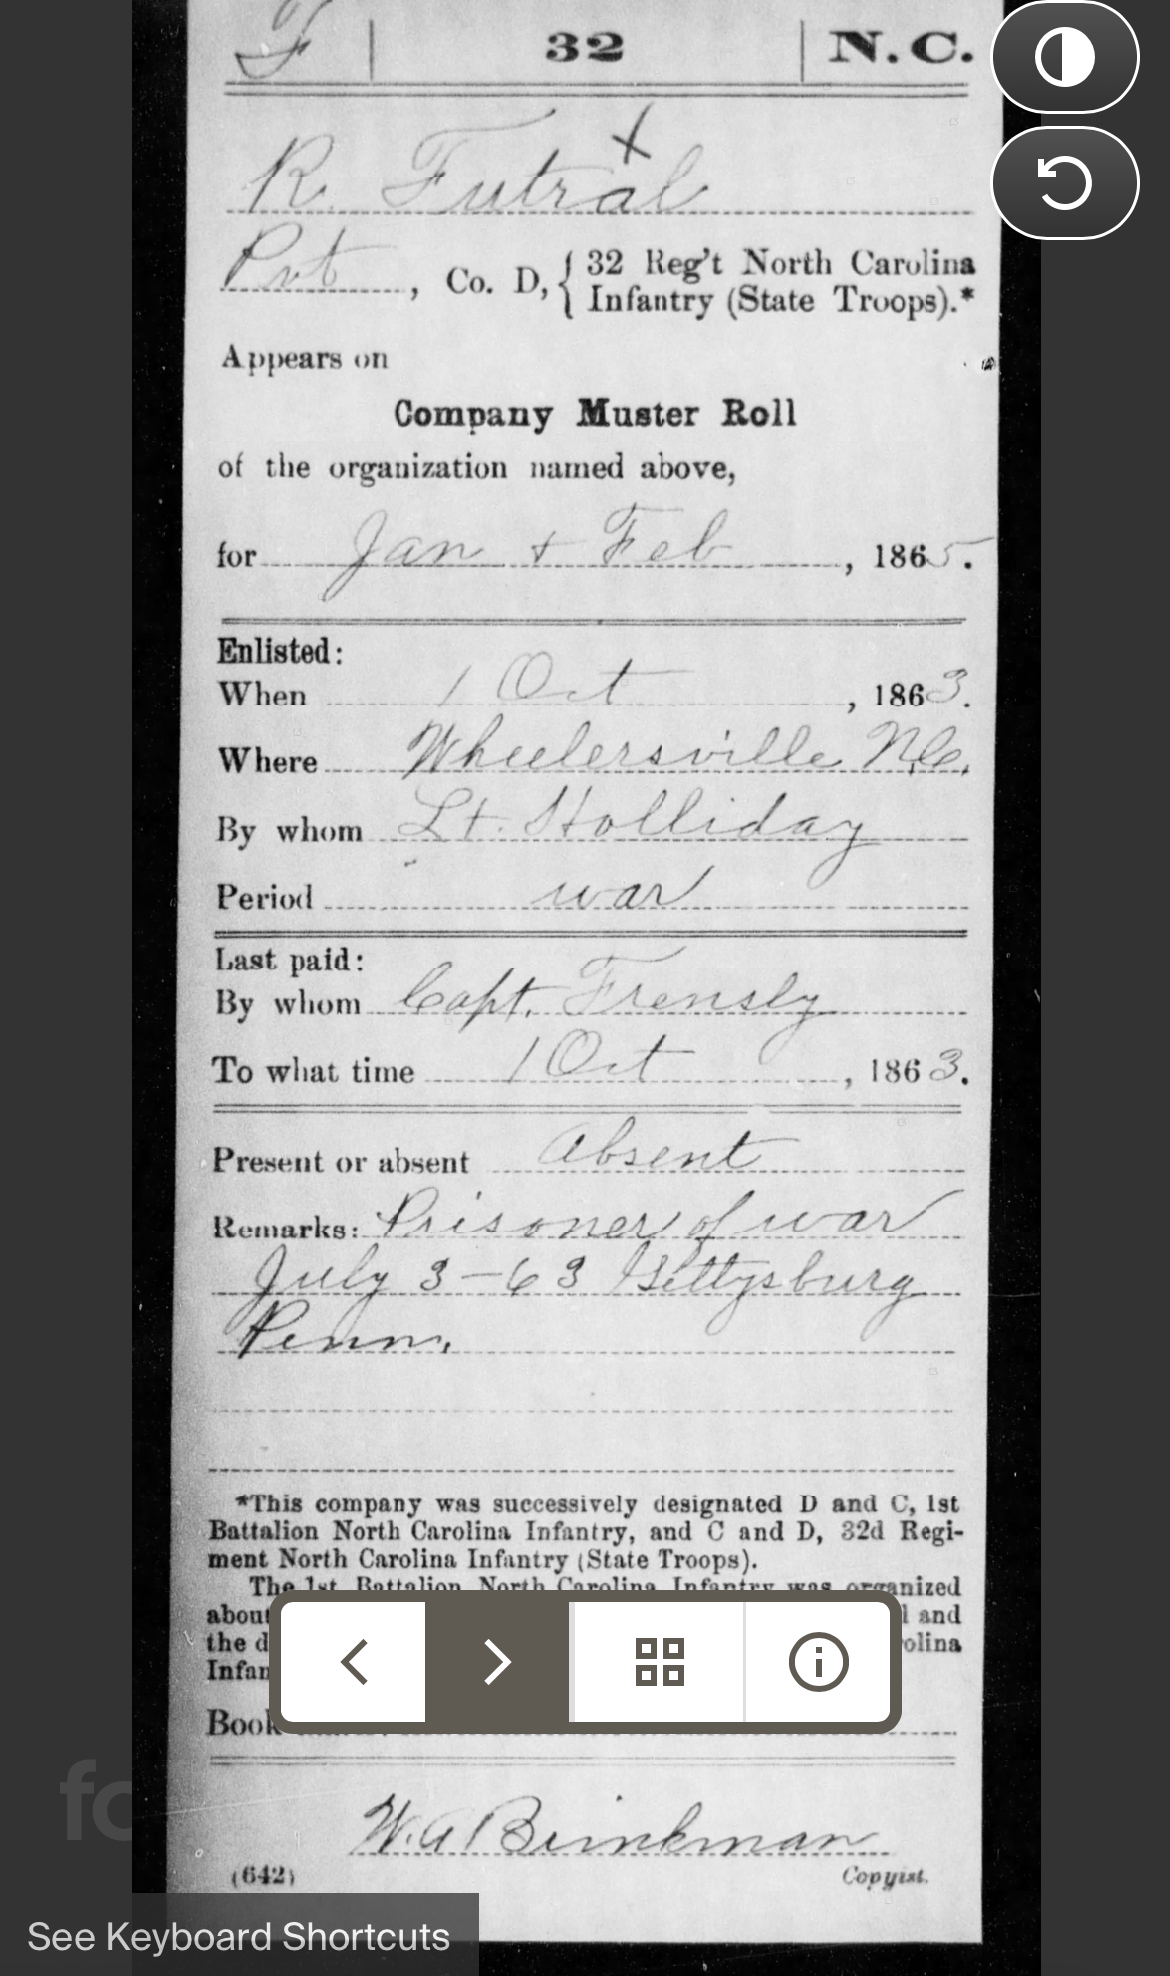 F 32 N.C.
R. Futral
Pvt, Co. D, { 32 Reg't North Carolina
Infantry (State Troops).*
Appears on
Company Muster Roll
of the organization named above,
for Jan + Feb, 1865.
Enlisted:
When 1 Oct, 1863.
Where Wheelersville N.C.
By whom Lt. Holliday
Period war
Last paid:
By whom Capt. Trensly
To what time 1 Oct, 1863.
Present or absent Absent
Remarks: Prisoner of war
July 3-63 Gettysburg
Penn.
*This company was successively designated D and C, 1st
Battalion North Carolina Infantry, and C and D, 32d Regi-
ment North Carolina Infantry (State Troops).
The 1st Battalion North Carolina Infantry was organized
about and
the
Book
W.A Brinkman
(642) Copyist.
See Keyboard Shortcuts